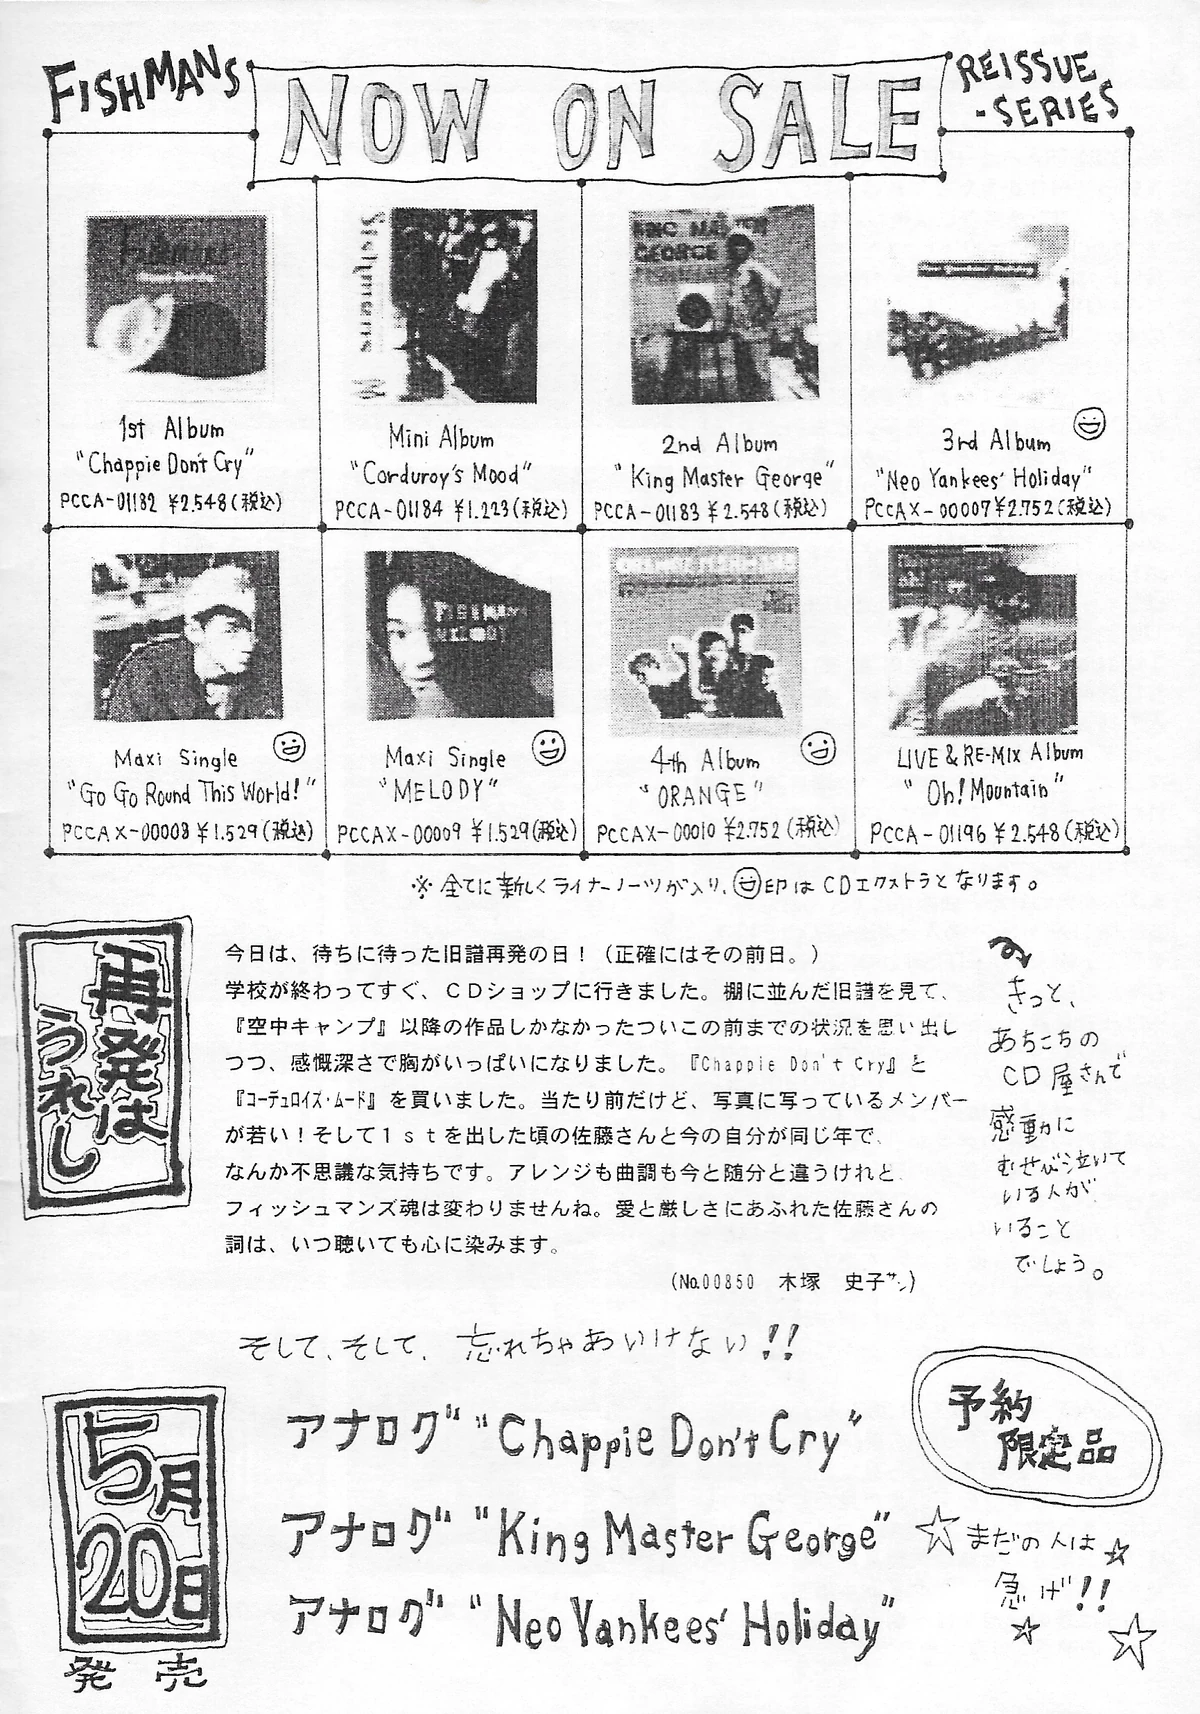 FISHMANS
NOW ON SALE
REISSUE
-SERIES
Fishmans
Fishmans M
KING MASTER
GEORGE
FISHMANS
Neo Yankees' Holiday
1st Album
"Chappie Don't Cry"
PCCA-01182 ¥2.548(税込)
Mini Album
"Corduroy's Mood"
PCCA-01184 ¥1.223(税込)
2nd Album
"King Master George"
PCCA-01183 ¥2.548(税込)
3rd Album
"Neo Yankees' Holiday"
PCCAX-00007 ¥2.752(税込)
FISHMANS
MELODY
Maxi Single
"Go Go Round This World!"
PCCAX-00008 ¥1.529(税込)
Maxi Single
"MELODY"
PCCAX-00009 ¥1.529(税込)
4th Album
"ORANGE"
PCCAX-00010 ¥2.752(税込)
LIVE & RE-MIX Album
"Oh! Mountain"
PCCA-01196 ¥2.548(税込)
※全てに新しくライナーノーツが入り、印はCDエクストラとなります。
再発は
うれし
今日は、待ちに待った旧譜再発の日!(正確にはその前日。)
学校が終わってすぐ、CDショップに行きました。棚に並んだ旧譜を見て、
『空中キャンプ』以降の作品しかなかったついこの前までの状況を思い出し
つつ、感慨深さで胸がいっぱいになりました。『Chappie Don't Cry』と
『コーデュロイズ・ムード』を買いました。当たり前だけど、写真に写っているメンバー
が若い!そして1stを出した頃の佐藤さんと今の自分が同じ年で、
なんか不思議な気持ちです。アレンジも曲調も今と随分と違うけれど、
フィッシュマンズ魂は変わりませんね。愛と厳しさにあふれた佐藤さんの
詞は、いつ聴いても心に染みます。
(No.00850 木塚 史子サン)
きっと、
あちこちの
CD屋さんで
感動に
むせび泣いて
いる人が
いること
でしょう。
そして、そして、忘れちゃあいけない!!
5月
20日
発売
アナログ "Chappie Don't Cry"
アナログ "King Master George"
アナログ "Neo Yankees' Holiday"
予約
限定品
☆まだの人は☆
急げ!!